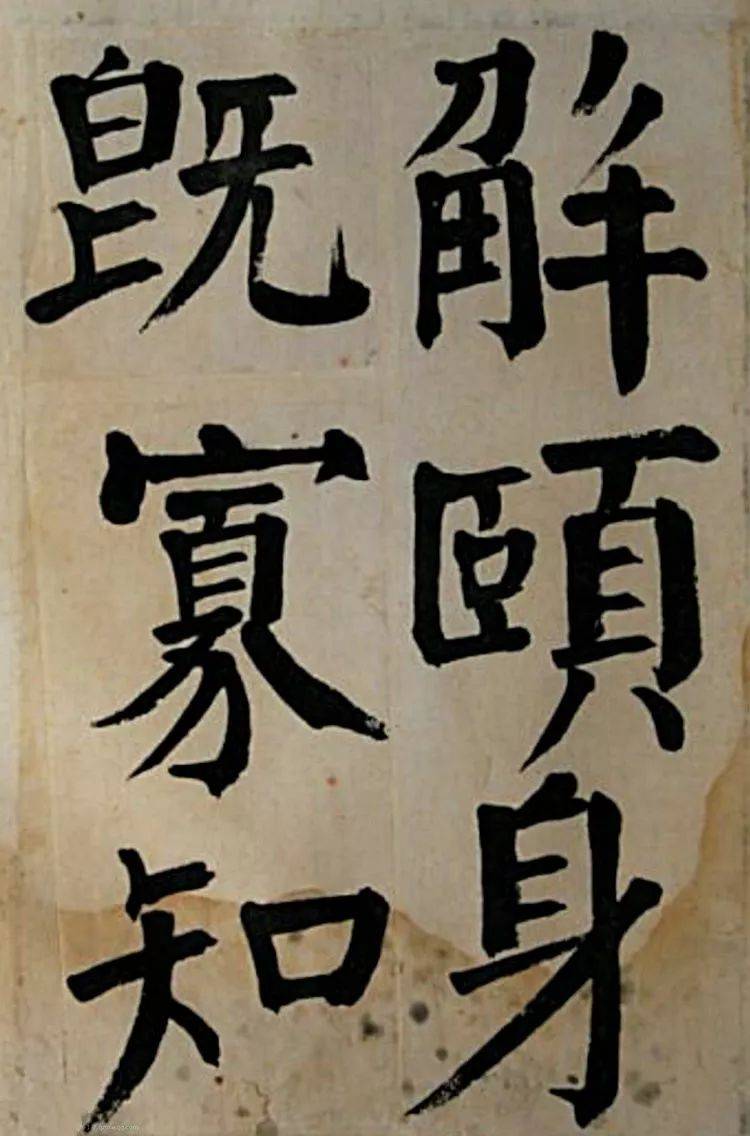 解頤身
既寡知